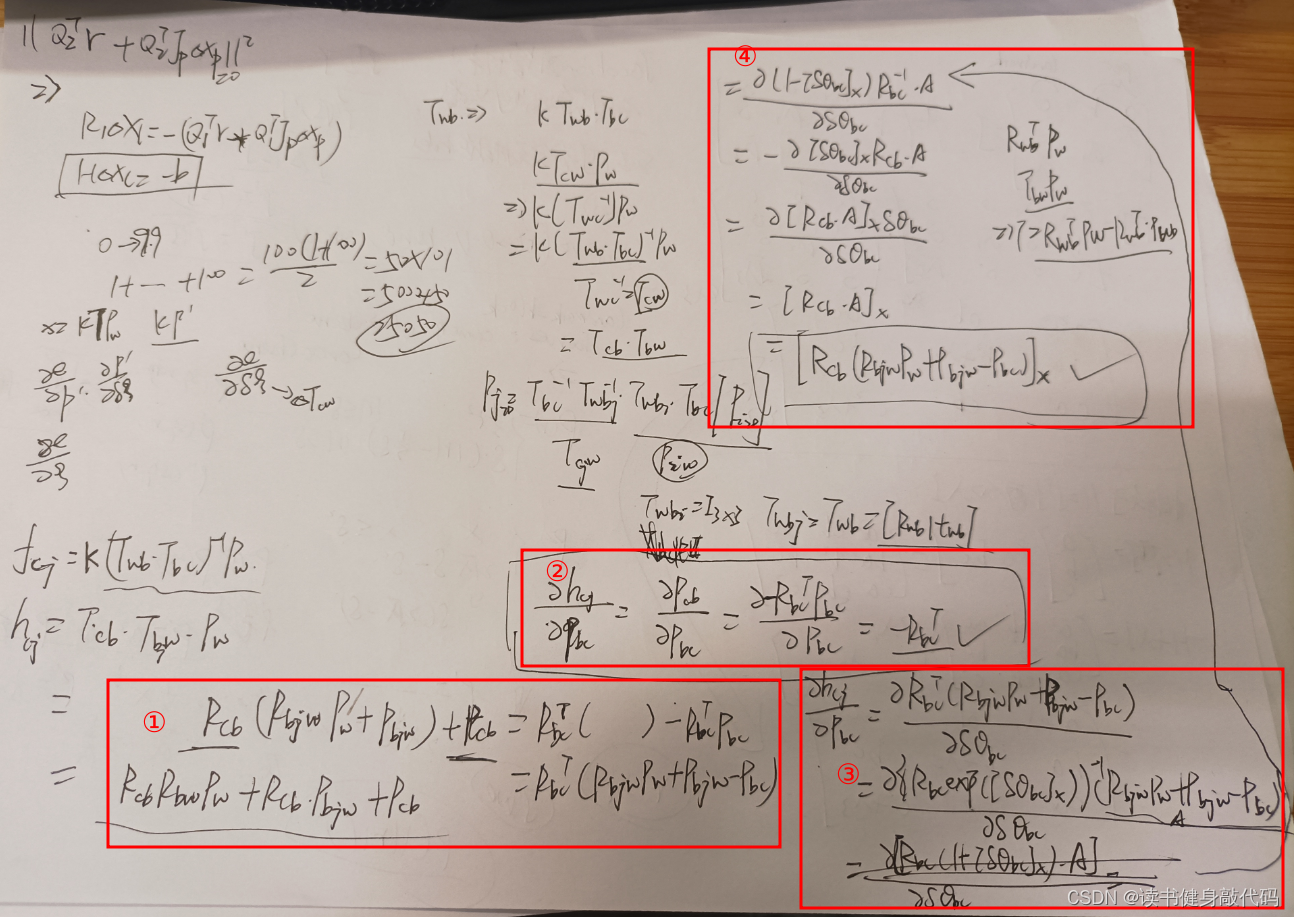 || Q₂ᵀr + Q₂ᵀJₚΔxₚ||²
=>
R₁Δx₁ = -(Q₁ᵀr + Q₁ᵀJₚΔxₚ)
HΔx = -b
0 → 99
1+ — +100 = 100(1+100)/2 = 50×101
= 50
25050
KP'
∂e/∂p' · ∂p'/∂δξ
∂e/∂δξ → ΔTcw
∂e/∂ξ
Twb =>
K Twb·Tbc
K Tcw·Pw
=> K(Twc⁻¹)Pw
= K(Twb·Tbc)⁻¹Pw
Twc⁻¹ = Tcw
= Tcb·Tbw
Pj = Tbc⁻¹ Twbj⁻¹·Twbi·Tbc
Tcjw
Twbi = I₃ₓ₃ Twbj = Twb = [Rwb|twb]
fcj = K(Twb·Tbc)⁻¹Pw.
hcj = Tcb·Tbjw·Pw
①
= Rcb(Rbjw Pw + Pbjw) + Pcb = Rbcᵀ( ) - RbcᵀPbc
= RcbRbwPw + Rcb·Pbjw + Pcb = Rbcᵀ(RbjwPw + Pbjw - Pbc)
②
∂hcj/∂Pbc = ∂Pcb/∂Pbc = ∂-RbcᵀPbc/∂Pbc = -Rbcᵀ ✓
③
∂hcj/∂Pbc = ∂Rbcᵀ(RbjwPw + Pbjw - Pbc)/∂δθbc
= ∂{(Rbc exp([δθbc]ₓ))⁻¹(RbjwPw + Pbjw - Pbc)/∂δθbc
A
= ∂[Rbc(1+[δθbc]ₓ)·A]/∂δθbc
④
= ∂(1-[δθbc]ₓ)Rbc⁻¹·A/∂δθbc
= -∂[δθbc]ₓRcb·A/∂δθbc
= ∂[Rcb·A]ₓδθbc/∂δθbc
= [Rcb·A]ₓ
= [Rcb(RbjwPw + Pbjw - Pbc)]ₓ ✓
Rwbᵀ Pw
TbwPw
RwbᵀPw - Rwbᵀ·Pwb
CSDN @读书健身敲代码